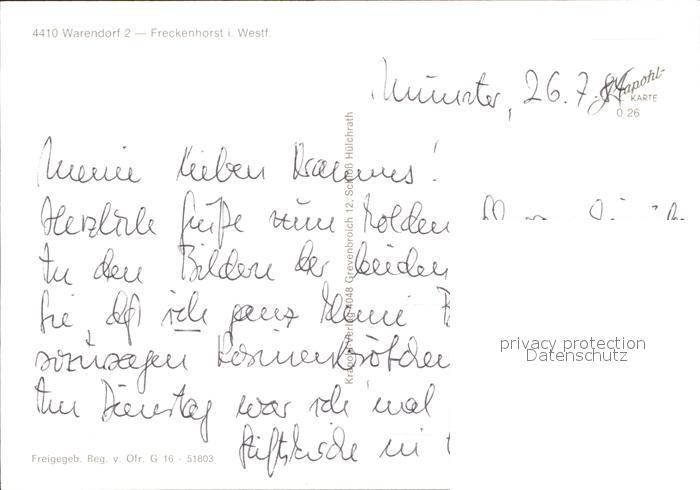 4410 Warendorf 2 — Freckenhorst i. Westf.
Münster, 26.7.84
Krapohl-
KARTE
0 26
Meine lieben
Herzliche Grüße zum
In den Bildern der beiden
Sie, daß ich ganz kleine
sozusagen Rosinenbrötchen
Am Dienstag war ich mal
Stiftskirche in
Krapohl-Verlag 4048 Grevenbroich 12, Schloß Hülchrath
privacy protection
Datenschutz
Freigegeb. Reg. v. Ofr. G 16 - 51803